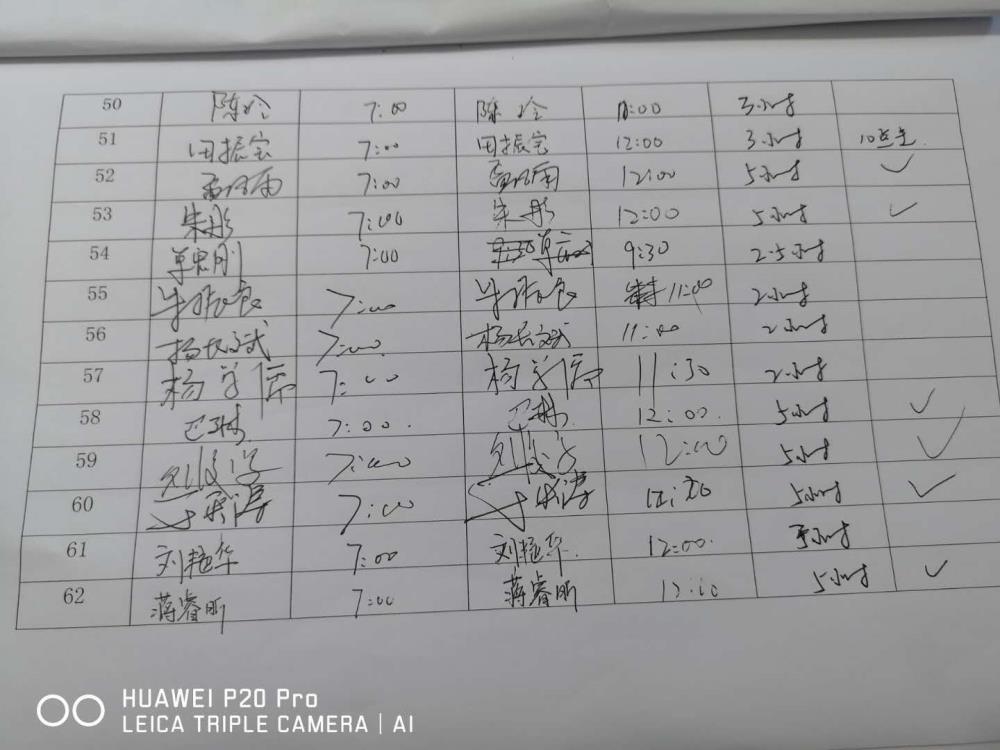 50 陈玲 7:00 陈玲 11:00 3小时
51 田振宝 7:00 田振宝 12:00 3小时 10点走
52 7:00 12:00 5小时
53 朱彤 7:00 朱彤 12:00 5小时
54 单忠刚 7:00 9:30 2.5小时
55 7:00 11:00 2小时
56 杨长斌 7:00 杨长斌 11:00 2小时
57 杨学儒 7:00 杨学儒 11:30 2小时
58 巴琳 7:00. 巴琳 12:00. 5小时
59 7:00 12:00 5小时
60 7:00 5小时
61 刘艳华 7:00 刘艳华. 12:00. 小时
62 蒋睿昕 7:00 蒋睿昕 12:00 5小时
HUAWEI P20 Pro
LEICA TRIPLE CAMERA | AI